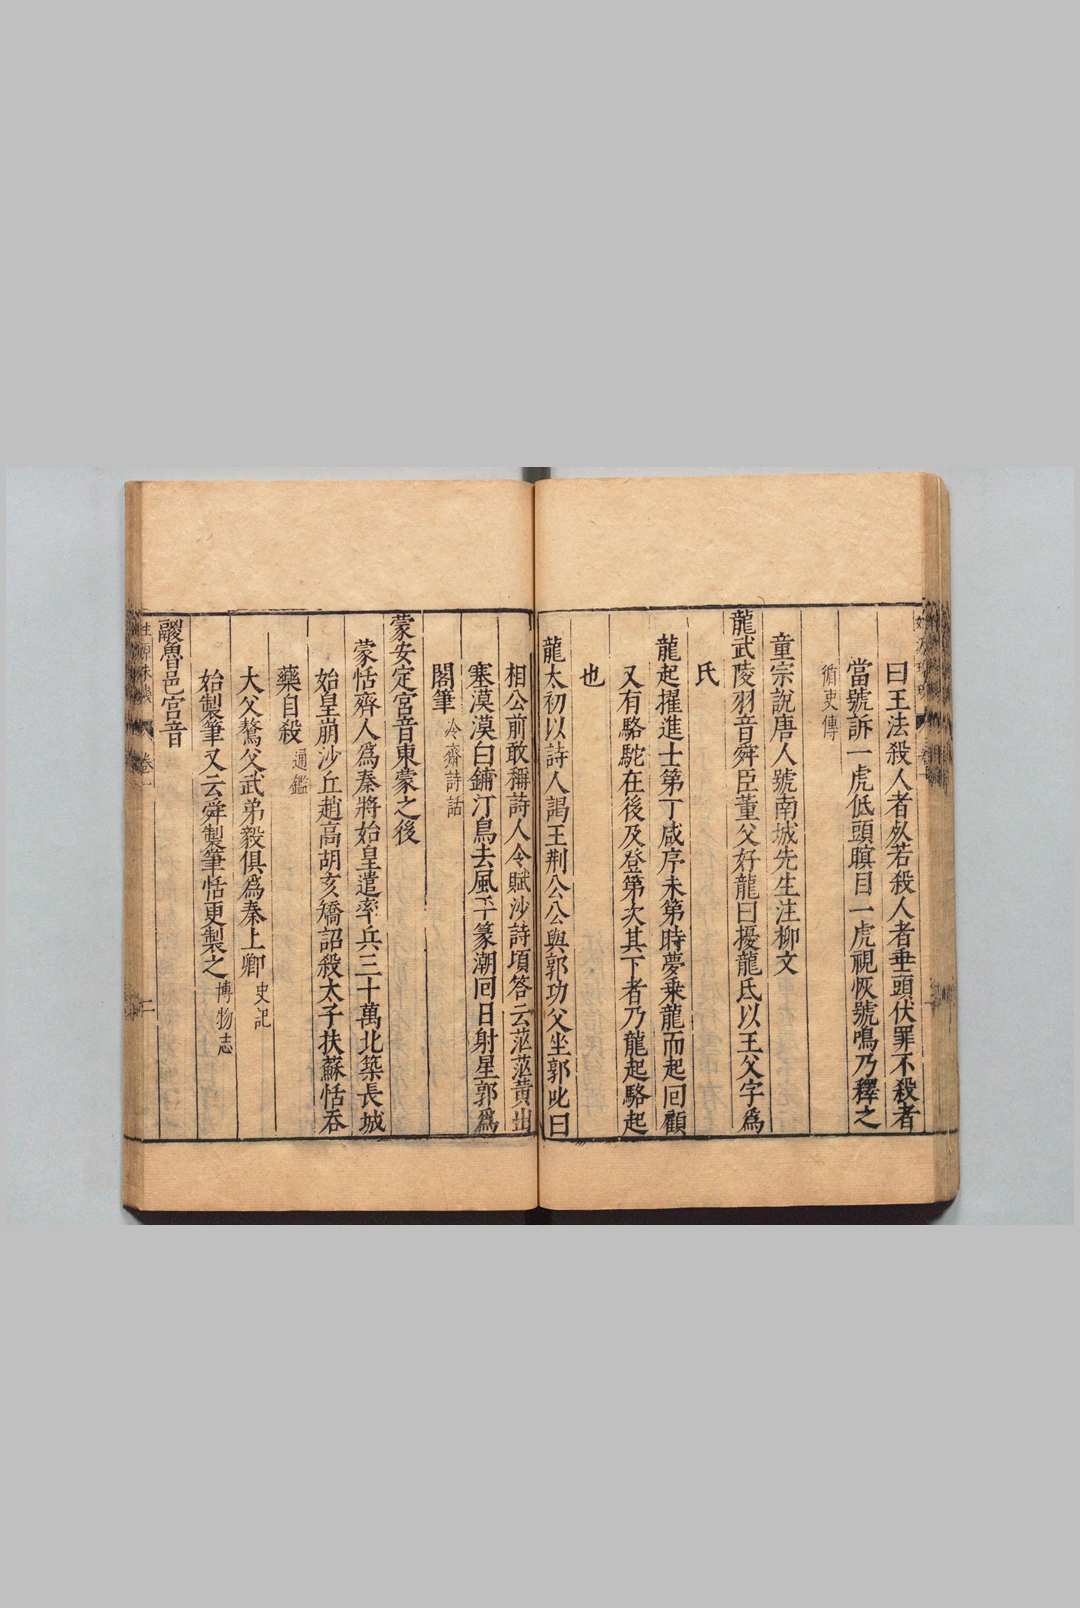 曰王法殺人者必若殺人者垂頭伏罪不殺者
當號訴一虎低頭瞑目一虎視恢號鳴乃釋之
循吏傳
童宗說唐人號南城先生注柳文
龍武陵羽音舜臣董父好龍曰擾龍氏以王父字爲
氏
龍起擢進士第丁咸序未第時夢乗龍而起回顧
又有駱駝在後及登第次其下者乃龍起駱起
也
龍太初以詩人謁王荆公公與郭功父坐郭叱曰
相公前敢稱詩人令賦沙詩頃答云茫茫黄出
塞漠漠白鋪汀鳥去風平篆潮回日射星郭爲
閣筆 冷齋詩話
蒙安定宫音東蒙之後
蒙恬齊人爲秦將始皇遣率兵三十萬北築長城
始皇崩沙丘趙高胡亥矯詔殺太子扶蘇恬吞
藥自殺 通鑑
大父驁父武弟毅俱爲秦上卿 史記
始製筆又云舜製筆恬更製之 博物志
鬷魯邑宫音
卷一
二